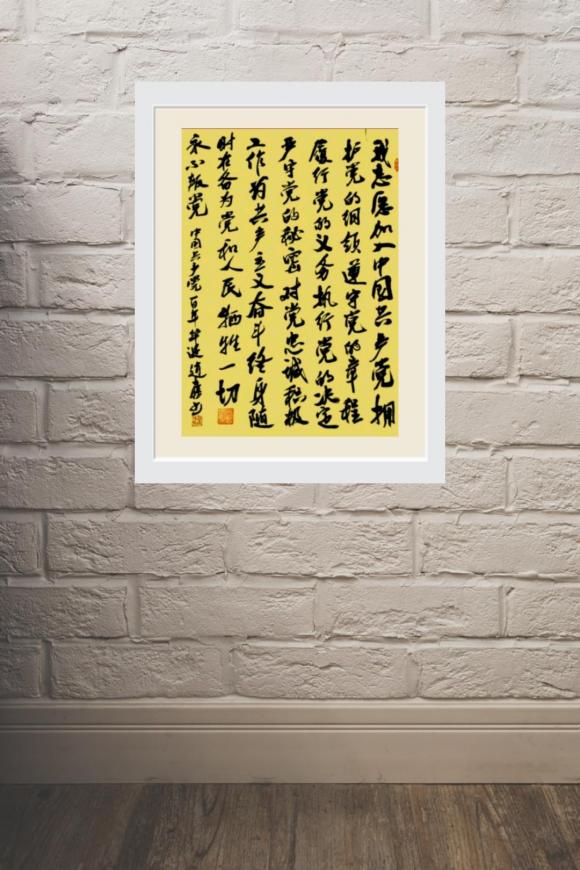 我志愿加入中国共产党拥
护党的纲领遵守党的章程
履行党的义务执行党的决定
严守党的秘密对党忠诚积极
工作为共产主义奋斗终身随
时准备为党和人民牺牲一切
永不叛党 中国共产党百年华诞赵